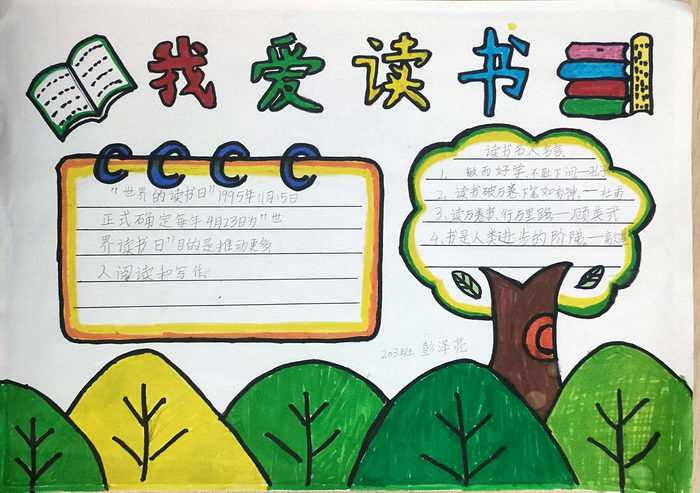 我爱读书
"世界的读书日"1995年11月15日
正式确定每年4月23日为"世
界读书日"目的是推动更多
人阅读和写作
读书名人名言
1、敏而好学,不耻下问一
2、读书破万卷下笔如有神,一杜甫
3、读万卷书,行万里路一顾炎武
4、书是人类进步的阶梯一高尔基
203班 彭泽苑